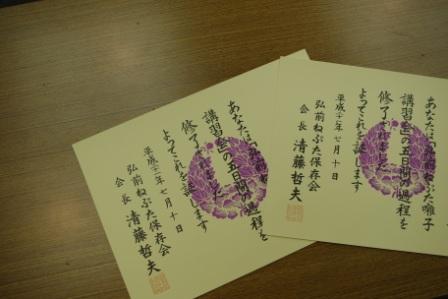 あなたは
講習会」の 日間の過程を
修了されました
よってこれを証します
平成 年七月十日
弘前ねぷた保存会
会長 清藤哲夫
あなたは ねぷた囃子
講習会」の 日間の過程を
修了されました
よってこれを証します
平成 年七月十日
弘前ねぷた保存会
会長 清藤哲夫